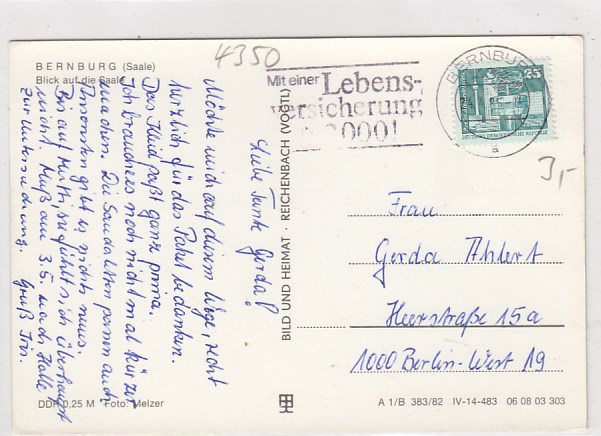 4350
BERNBURG (Saale)
Blick auf die Saale
Mit einer Lebens-
versicherung
2000!
BERNBURG
25
3,-
Liebe Tante Gerda!
Möchte mich auf diesem Wege, recht
herzlich für das Paket bedanken.
Das Kleid paßt ganz prima.
Ich brauche es noch nicht mal kürzer
machen. Die Sandaletten passen auch.
Ansonsten gibt es nichts neues.
Bis auf Mutti, sie fühlt sich überhaupt
nicht. Muß am 3.5. nach Halle
zur Untersuchung. Gruß Iris.
BILD UND HEIMAT · REICHENBACH (VOGTL)
Frau
Gerda Ahlert
Heerstraße 15a
1000 Berlin-West 19
DDR 0,25 M Foto: Melzer
A 1/B 383/82 IV-14-483 06 08 03 303